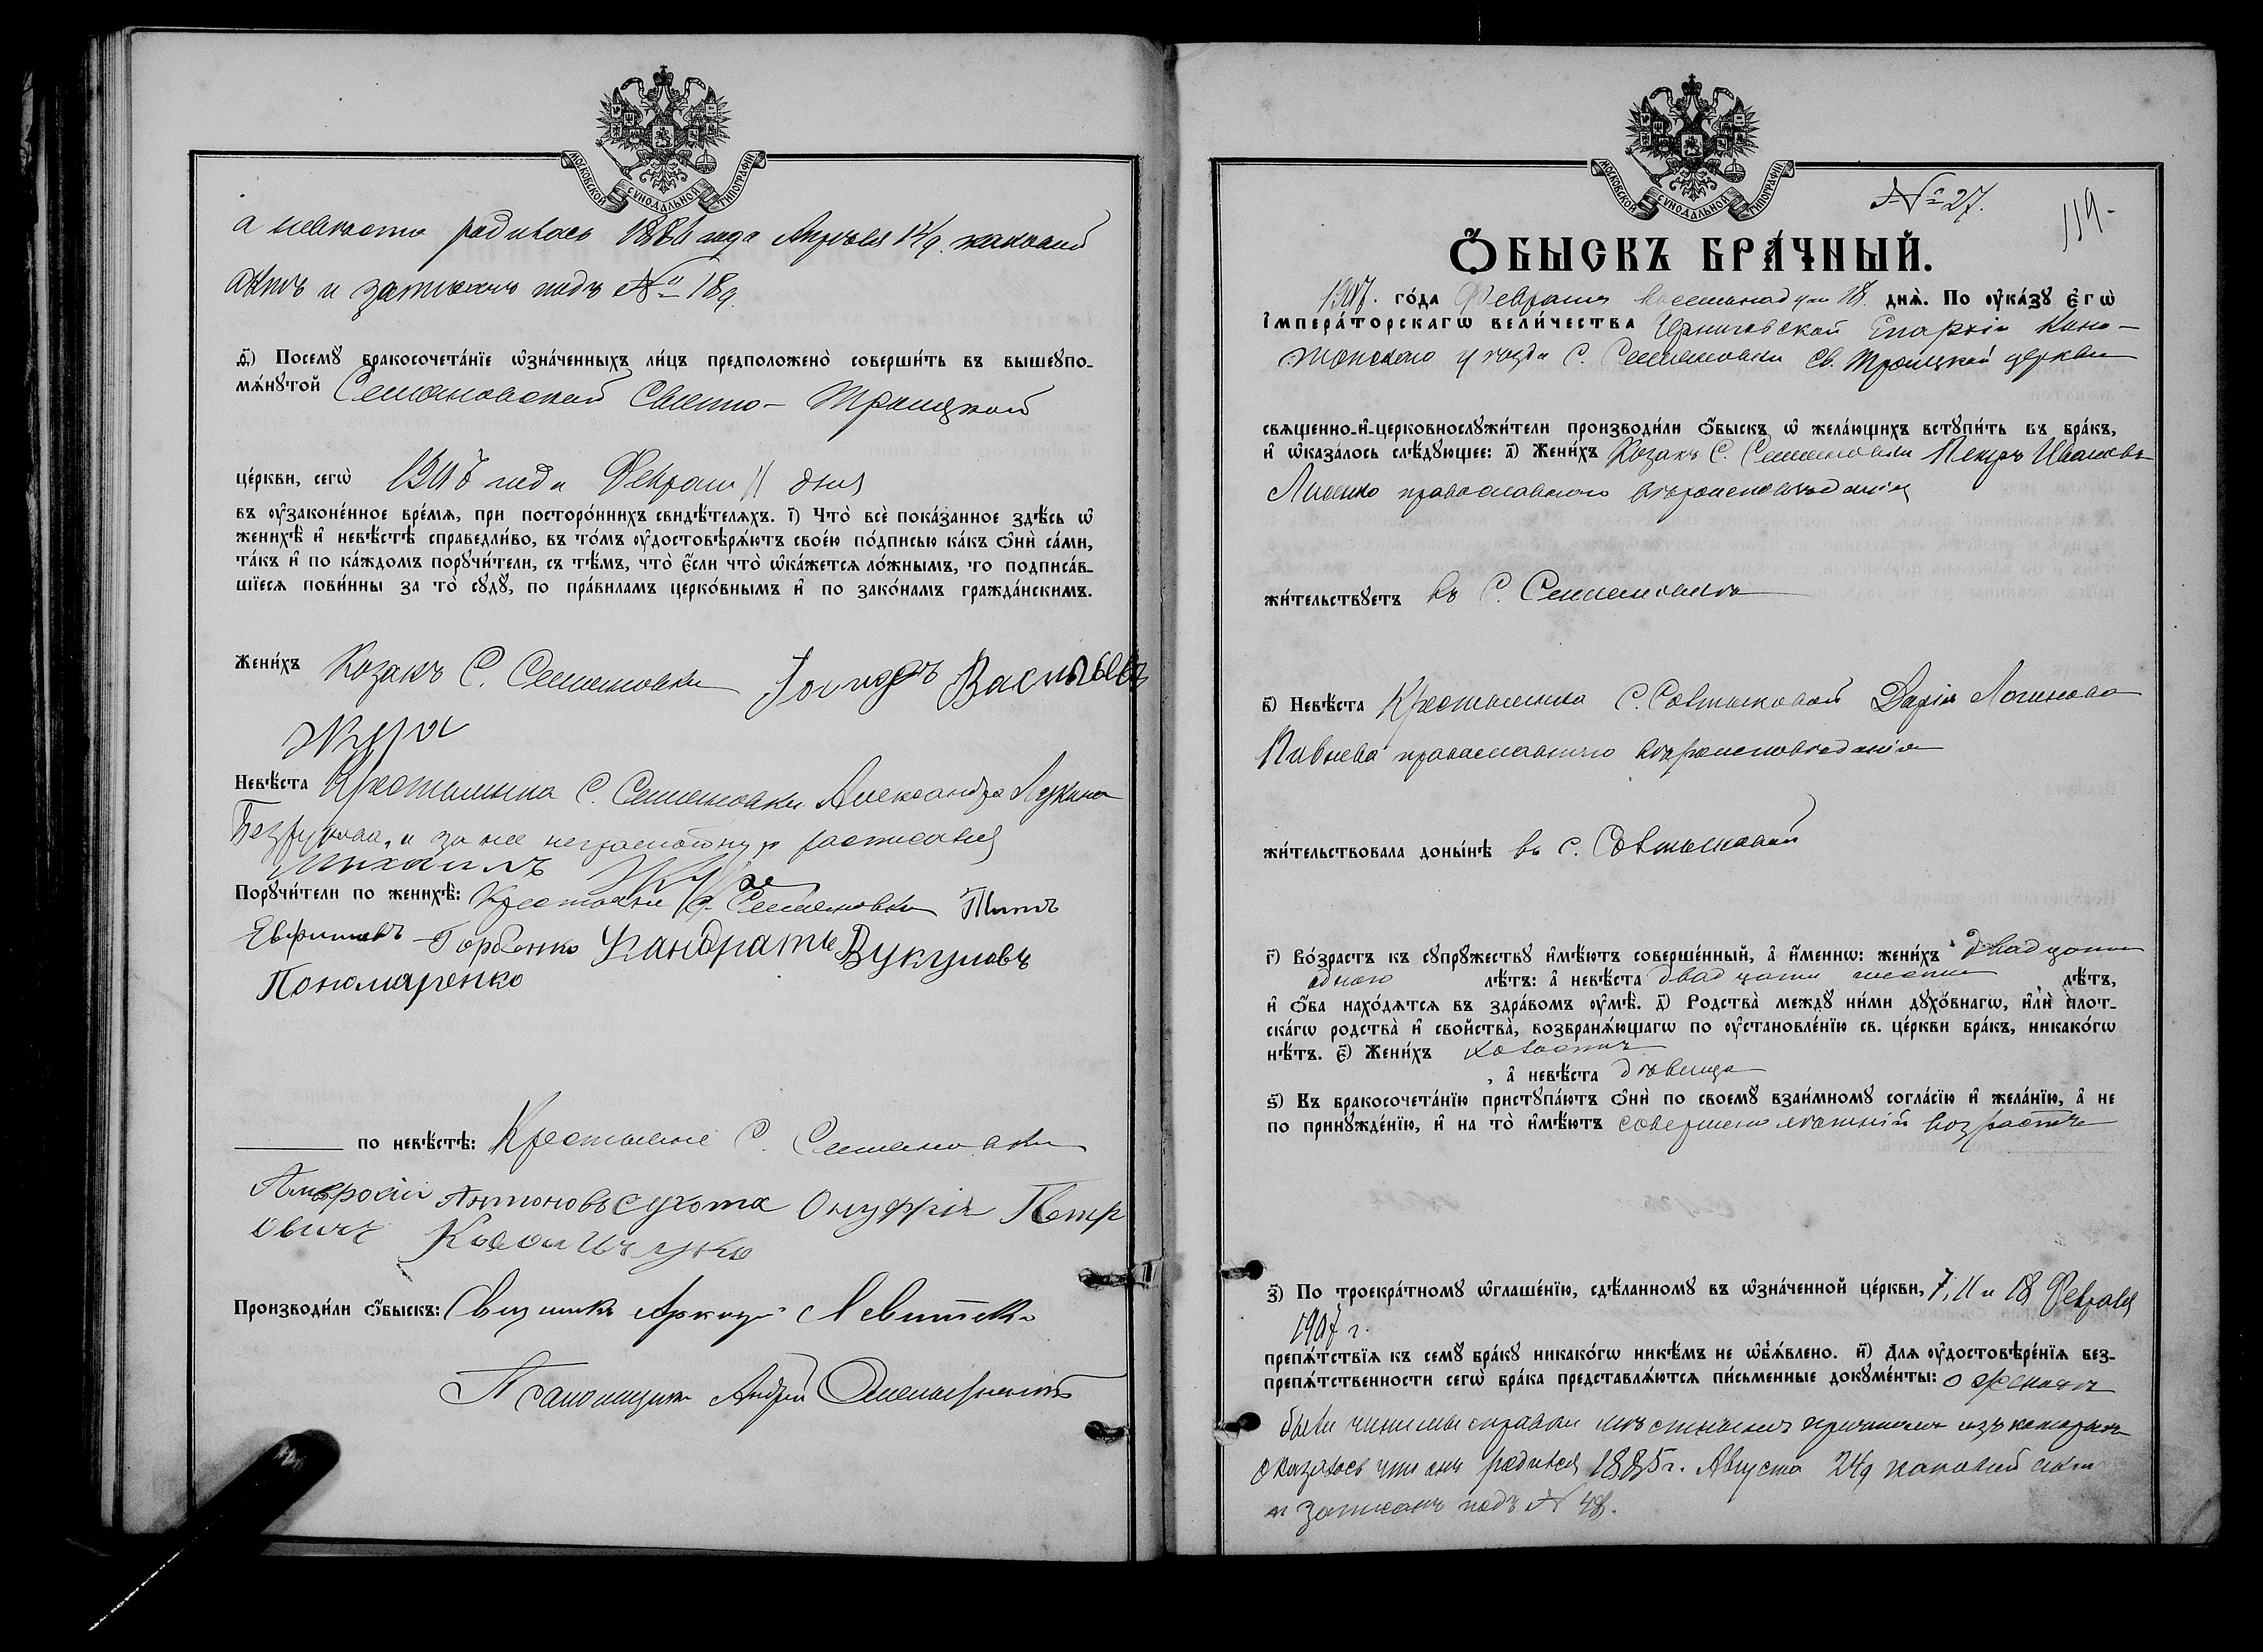 МОСКОВСКОЙ СѴНОДАЛЬНОЙ ТИПОГРАФІИ
а невѣста родилась 1886 года Апрѣля 14/9. каковой
актъ и записанъ подъ № 18 д.
д҃) Посемꙋ̀ бракосочета́нїе ѡ҆зна́ченныхъ ли́цъ предположено̀ соверши́ть въ вышеꙋпо-
мѧ́нꙋтой Семеновской Свято- Троицкой
це́ркви, сегѡ̀ 1907 года Февраля 11 дня
въ ᲂу҆законе́нное вре́мѧ, при посторо́ннихъ свидѣ́телѧхъ. і҃) Что̀ всѐ пока́занное здѣ́сь ѡ҆
женихѣ̀ и҆ невѣ́стѣ справедли́во, въ то́мъ ᲂу҆достовѣрѧ́ютъ свое́ю по́дписью ка́къ ѻ҆нѝ са́ми,
та́къ и҆ по ка́ждомъ порꙋчи́тели, съ тѣ́мъ, что̀ є҆́сли что̀ ѡ҆ка́жетсѧ ло́жнымъ, то подписа́в-
шїесѧ пови́нны за то̀ сꙋдꙋ̀, по пра́виламъ церко́внымъ и҆ по зако́намъ гражда́нскимъ.
Жени́хъ Козакъ С. Семеновки Васильевъ
Жура
Невѣ́ста Крестьянка С. Семеновки Александра Лукина
и за нее неграмотную росписался
Михаилъ Жура
Порꙋчи́тели по женихѣ̀: Крестьяне С. Семеновки Титъ
Евфимовъ Горбенко Кандратъ Вукуловъ
Пономаренко
по невѣ́стѣ: Крестьяне С. Семеновки
Амвросій Антоновъ Сухота Онуфрій Петр
овичъ
Производи́ли ѻ҆́быскъ: Священникъ Аркадій Левитскій
Псаломщикъ Андрей
МОСКОВСКОЙ СѴНОДАЛЬНОЙ ТИПОГРАФІИ
№ 27.
119-
Ѻ҆БЫСКЪ БРА́ЧНЫЙ.
1907. го́да Февраля восемнадцат 18. днѧ̀. По ᲂу҆ка́зꙋ є҆гѡ̀
і҆мпера́торскагѡ вели́чества Черниговской Епархіи Коно-
топскаго уѣзда С. Семеновки Св. Троицкой церкви
свѧщенно-и҆-церковнослꙋжи́тели производи́ли ѻ҆́быскъ ѡ҆ жела́ющихъ встꙋпи́ть въ бра́къ,
и҆ ѡ҆каза́лось слѣ́дꙋющее: а҃) Жени́хъ Козакъ С. Семеновки Петръ Ивановъ
Лисенко православнаго вѣроисповѣданія
жи́тельствꙋетъ въ С. Семеновкѣ
в҃) Невѣ́ста Крестьянка С. Совтыковой Дарія Логинова
Павнева православнаго вѣроисповѣданія
жи́тельствовала доны́нѣ въ с. Совтыковой
г҃) Во́зрастъ къ сꙋпрꙋ́жествꙋ и҆мѣ́ютъ соверше́нный, а҆ и҆́меннѡ: жени́хъ двадцати
одного лѣ́тъ: а҆ невѣ́ста двадцати шести лѣ́тъ,
и҆ ѻ҆́ба нахо́дѧтсѧ въ здра́вомъ ᲂу҆мѣ̀. д҃) Родства̀ междꙋ̀ ни́ми дꙋхо́внагѡ, и҆лѝ плот-
ска́гѡ родства̀ и҆ сво́йства, возбранѧ́ющагѡ по ᲂу҆становле́нїю св. це́ркви бра́къ, никако́гѡ
нѣ́тъ. є҃) Жени́хъ холостъ
, а҆ невѣ́ста дѣвица
ѕ҃) Къ бракосочета́нїю пристꙋпа́ютъ ѻ҆нѝ по своемꙋ̀ взаи́мномꙋ согла́сїю и҆ жела́нїю, а҆ не
по принꙋжде́нїю, и҆ на то̀ и҆мѣ́ютъ совершеннолѣтній возрастъ
з҃) По троекра́тномꙋ ѡ҆глаше́нїю, сдѣ́ланномꙋ въ ѡ҆зна́ченной це́ркви, 7, 11 и 18 Февраля
1907 г.
препѧ́тствїѧ къ семꙋ̀ бра́кꙋ никако́гѡ никѣ́мъ не ѡ҆б̾ѧ́влено. и҃) Длѧ ᲂу҆достовѣре́нїѧ без-
препѧ́тственности сегѡ̀ бра́ка представлѧ́ютсѧ пи́сьменные докꙋме́нты: о женихѣ
были чинимы справки мѣстнымъ причтомъ изъ которыхъ
оказалось что онъ родился 1885 г. Августа 24 д каковой актъ
и записанъ подъ № 48.